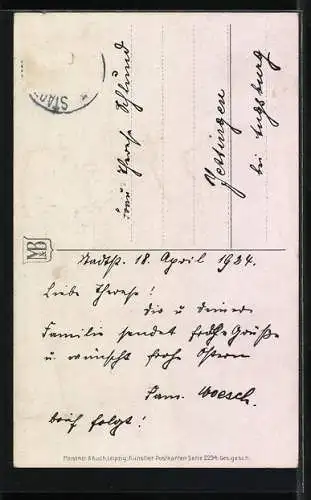 STADT
Frau Therese Schlund
Jettingen
bei Augsburg
MB
Stadtb. 18. April 1924.
Liebe Therese!
Dir u deiner
Familie sendet frohe Grüße
u. wünscht frohe Ostern
Fam. Woesch.
Brief folgt!
Meissner & Buch, Leipzig, Künstler-Postkarten Serie 2234. Ges. gesch.